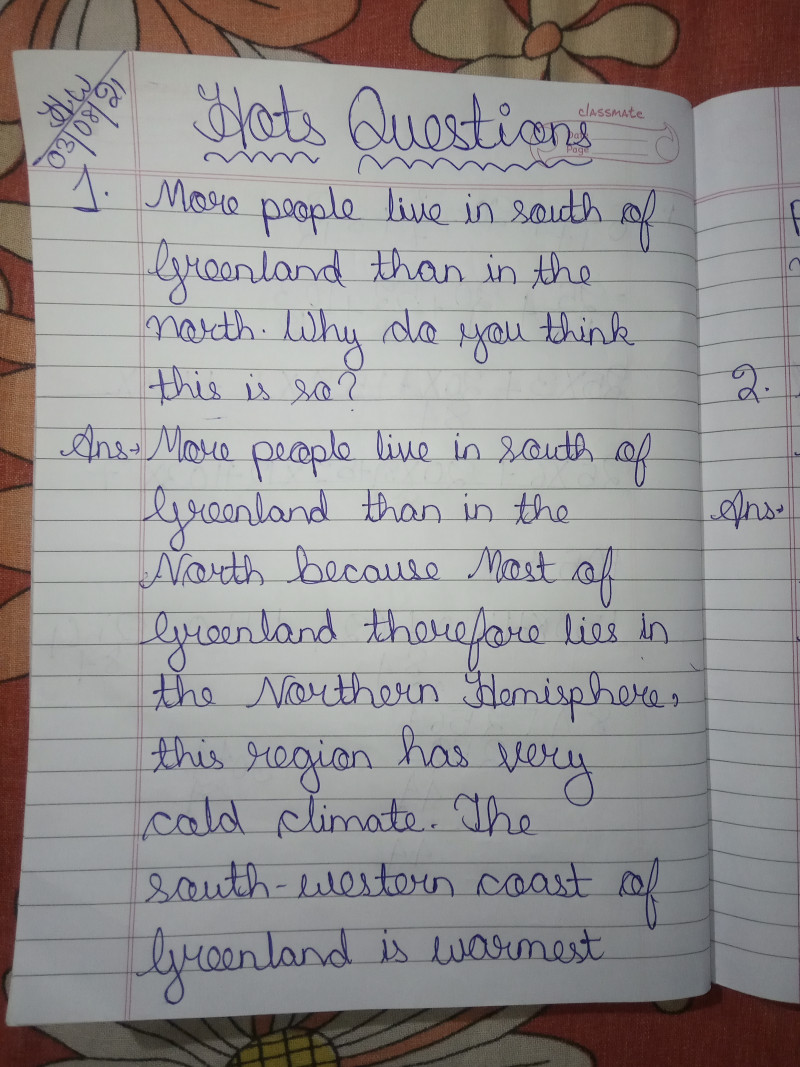 H.W
03/08/21
Hots Questions
classmate
Date
Page
1. More people live in south of
Greenland than in the
north. Why do you think
this is so?
Ans→ More people live in south of
Greenland than in the
North because Most of
Greenland therefore lies in
the Northern Hemisphere,
this region has very
cold climate. The
south-western coast of
Greenland is warmest
2.
Ans→